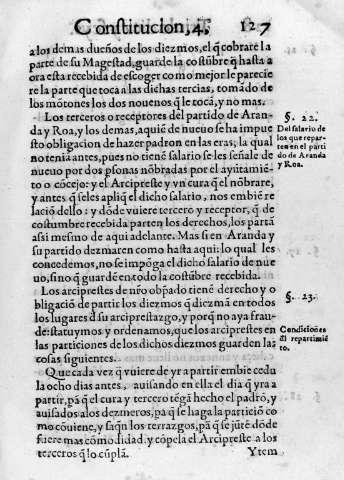 Constitucion, 4.
127
a los demas dueños de los diezmos, el q̃ cobrare la
parte de su Magestad, guarde la costũbre q̃ hasta a
ora esta recebida de escoger como mejor le parecie
re la parte que toca a las dichas tercias, tomãdo de
los mõtones los dos nouenos q̃ le tocã, y no mas.
Los terceros o receptores del partido de Aran-
da y Roa, y los demas, aquiẽ de nueuo se ha impue
sto obligacion de hazer padron en las eras; la qual
no teniã antes, pues no tienẽ salario se les señale de
nueuo por dos psonas nõbradas por el ayũtamiẽ-
to o cõcejo: y el Arcipreste y vn cura que el nõbrare,
y antes q̃ se les apliq̃ el dicho salario, nos embiẽ re
laciõ dello: y dõde vuiere tercero y receptor, q̃ de
costumbre recebida parten los derechos, los partã
assi mesmo de aqui adelante. Mas si en Aranda y
su partido dezmaren como hasta aqui: lo qual les
concedemos, no se impõga el dicho salario de nue
uo, sino q̃ guardẽ en todo la costũbre recebida.
§. 22.
Del salario de
los que repar-
ten en el parti
do de Aranda
y Roa.
Los arciprestes de nr̃o obp̃ado tienẽ derecho y o
bligaciõ de partir los diezmos q̃ diezmã en todos
los lugares d̃ su arciprestazgo, y porq̃ no aya frau-
de: statuymos y ordenamos, que los arciprestes en
las particiones de los dichos diezmos guarden las
cosas siguientes.
§. 23.
Condiciones
d̃l repartimiẽ
to.
Que cada vez q̃ vuierẽ de yr a partir embiẽ cedu
la ocho dias antes, auisando en ella el dia q̃ yra a
partir, pa q̃ el cura y tercero tẽgã hecho el padrõ, y
auisados a los dezmeros, pa q̃ se haga la particiõ co
mo cõuiene, y saqũ los terrazgos, pa q̃ se jũtẽ dõde
fuere mas comodidad. y cõpela el Arcipreste a los
terceros q̃ lo cũplã.
Ytem